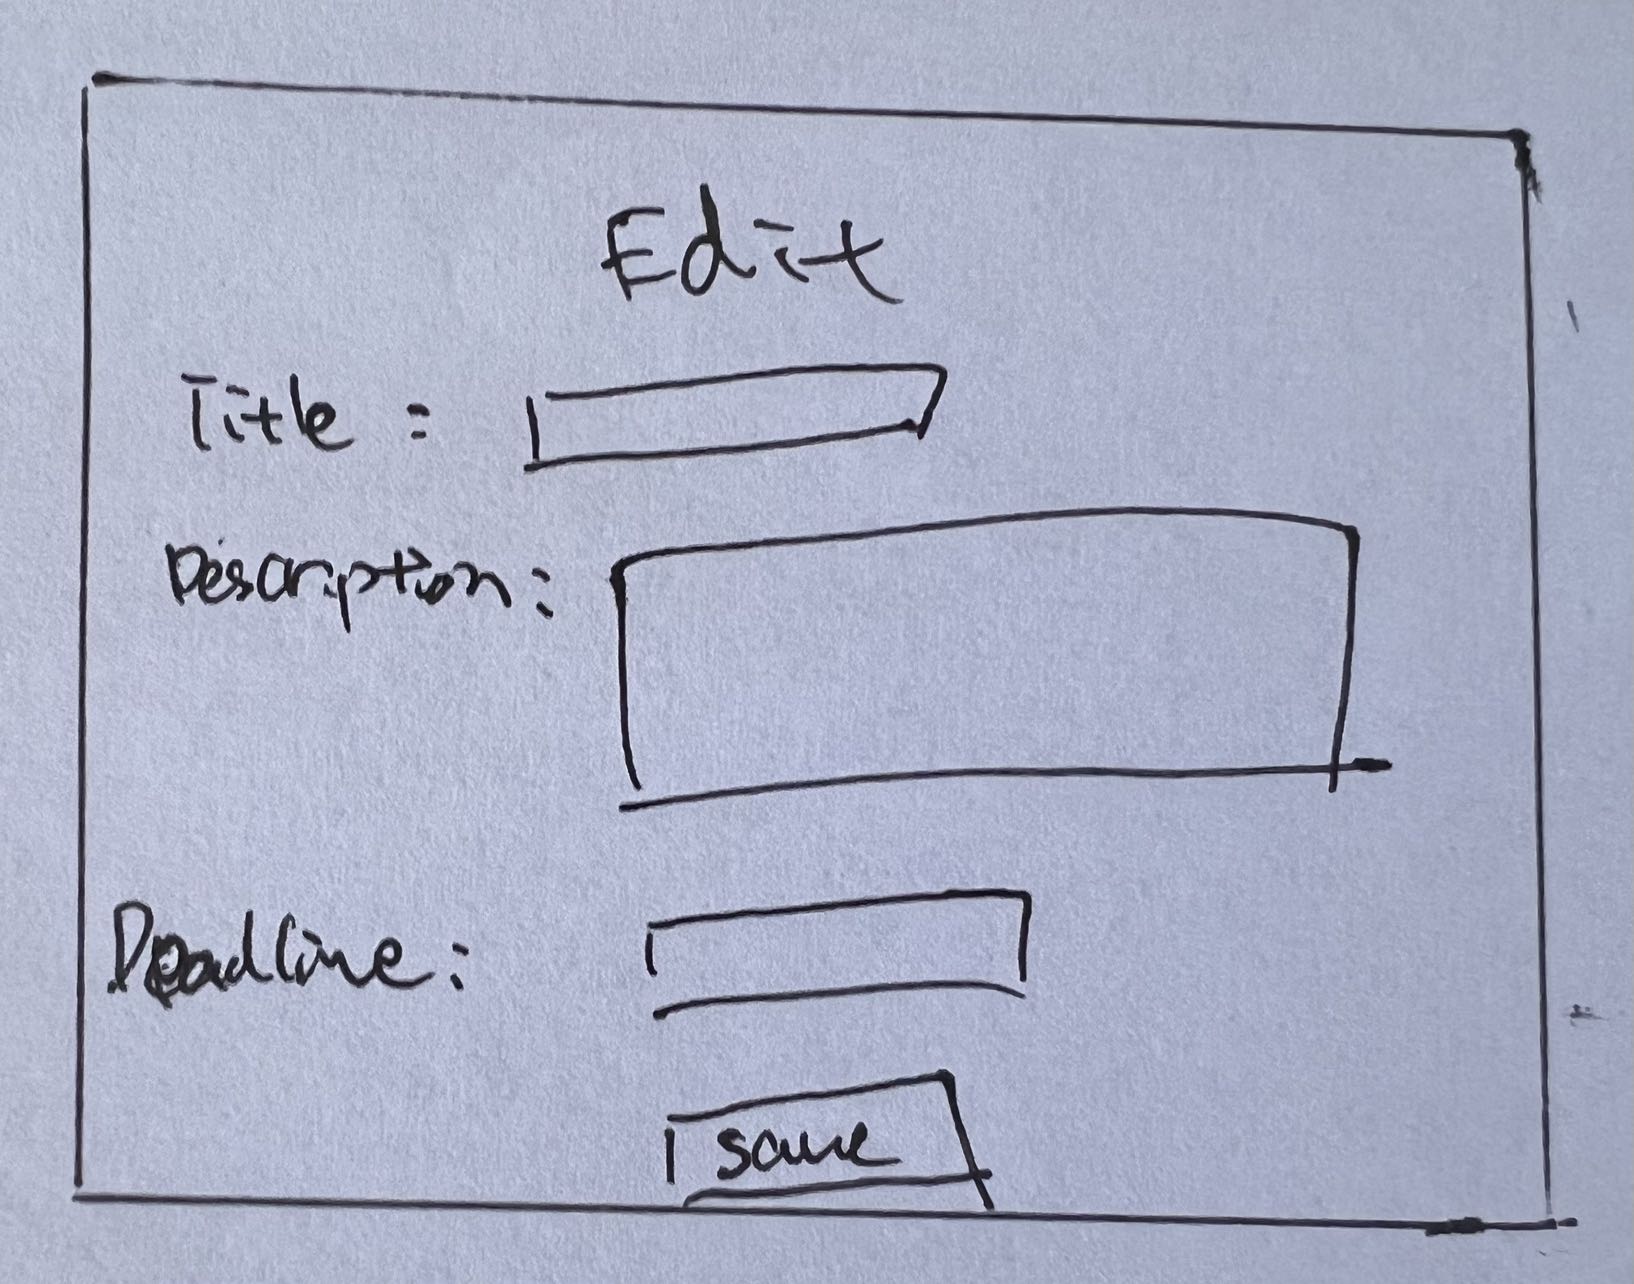 Edit
Title :
Description :
Deadline :
save